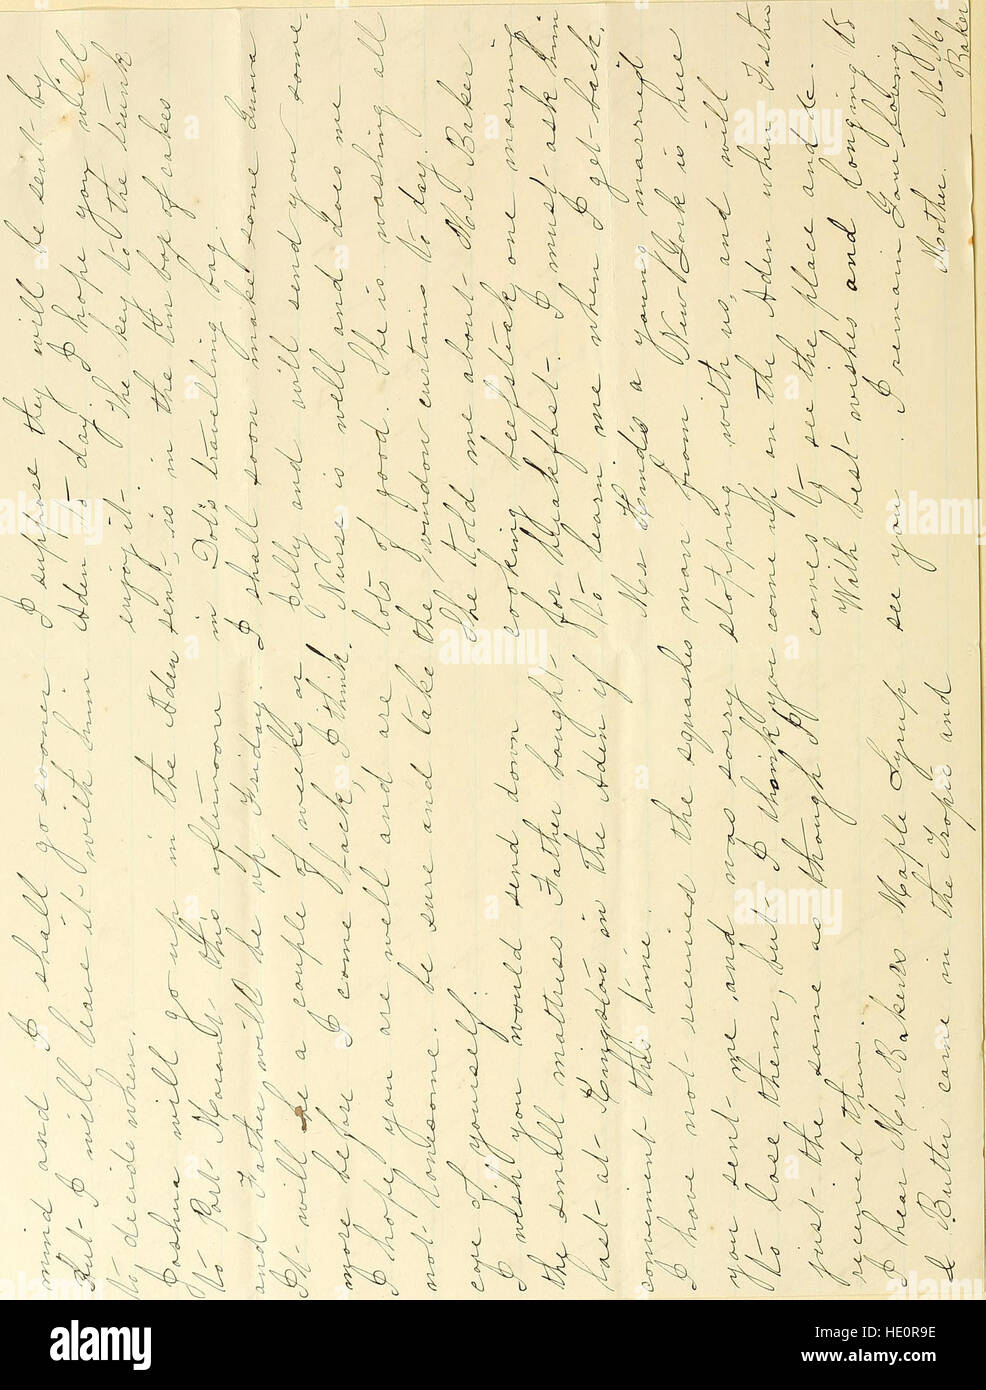 mind and I shall go sooner
But I will leave it with him
to decide when.
Joshua will go up in the Aden
to Port Morant this afternoon
and Father will be up Friday.
It will be a couple of weeks or
more before I come back, I think.
I hope you are well and are
not lonesome. be sure and take the
care of yourself.
I wish you would send down
the small mattress Father bought
last at Kingston in the Aden if
convenient this time.
I have not received the squashes
you sent me, and was sorry
to lose them, but I thank you
just the same as though I
received them.
I hear Mr Bakers Maple Syrup
& Butter came in the Tropic and
I suppose they will be sent by
Aden to-day. I hope you will
enjoy it. The key to the trunk
sent, is in the tin box of cakes
in Dot's travelling bag.
I shall soon make some Guava
Jelly and will send you some.
Nurse is well and does me
lots of good. She is washing all
window curtains to day.
She told me about Mr Baker
cooking beefsteak one morning
for breakfast. I must ask him
to learn me when I get back.
Mr Hinds a young married
man from New York is here
stopping with us, and will
come up on the Aden when Father
comes to see the place and &c.
With best wishes and longing to
see you. I remain Your loving
Mother. M
Baker
alamy
alamy
Image ID: HE0R9E
www.alamy.com